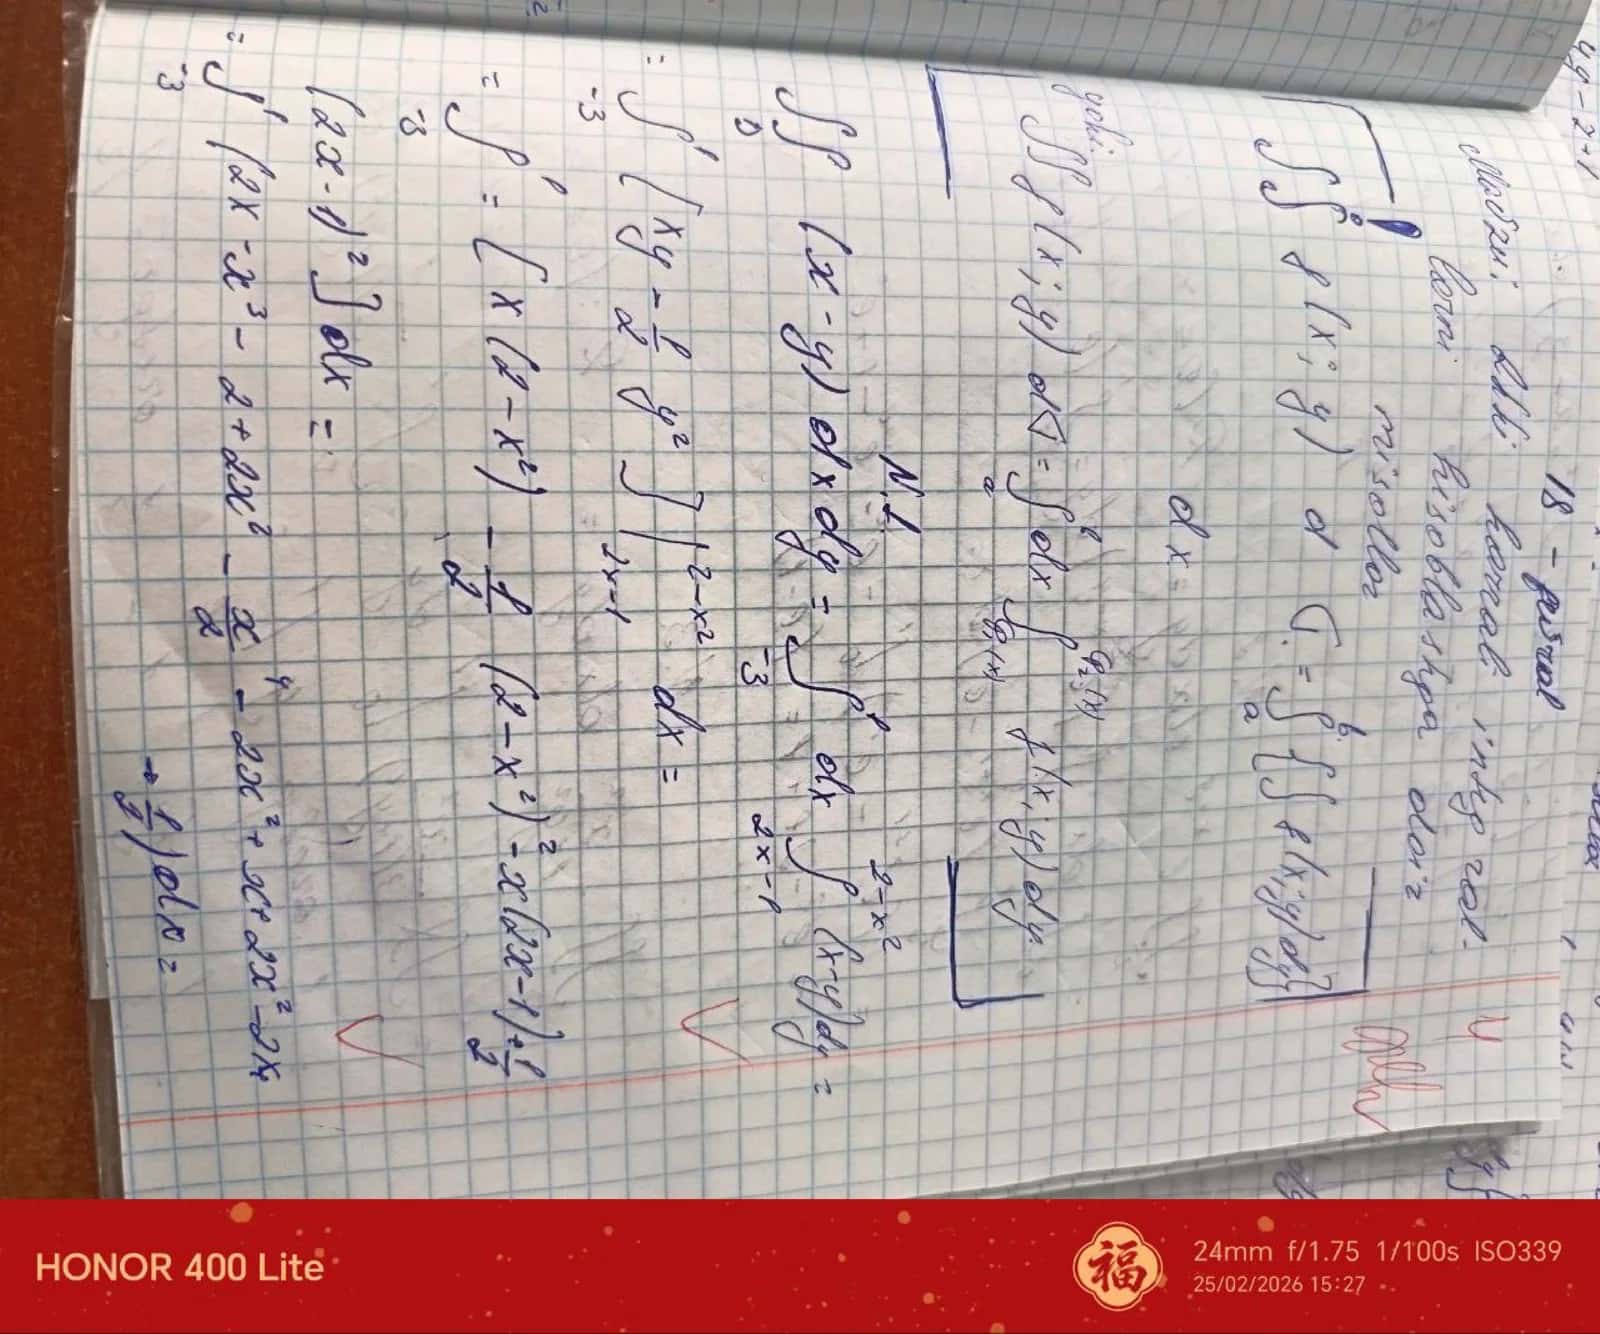 18 -
Mavzu: Ikki karrali integral-
larni hisoblashga doir
misollar
∬ f(x; y) d σ = ∫ₐᵇ { ∫ f(x; y) dy }
dx =
yoki:
∬ f(x; y) dσ = ∫ₐᵇ dx ∫_{φ₁(x)}^{φ₂(x)} f(x; y) dy.
N.1
∬_D (x - y) dx dy = ∫₋₃¹ dx ∫_{2x-1}^{2-x²} (x-y) dy =
= ∫₋₃¹ [xy - 1/2 y²] |_{2x-1}^{2-x²} dx =
= ∫₋₃¹ = [x(2-x²) - 1/2 (2-x²)² - x(2x-1) + 1/2
(2x-1)²] dx =
= ∫₋₃¹ (2x - x³ - 2 + 2x² - x⁴/2 - 2x² + x + 2x² - 2x
+ 1/2) dx =
HONOR 400 Lite
福
24mm f/1.75 1/100s ISO339
25/02/2026 15:27